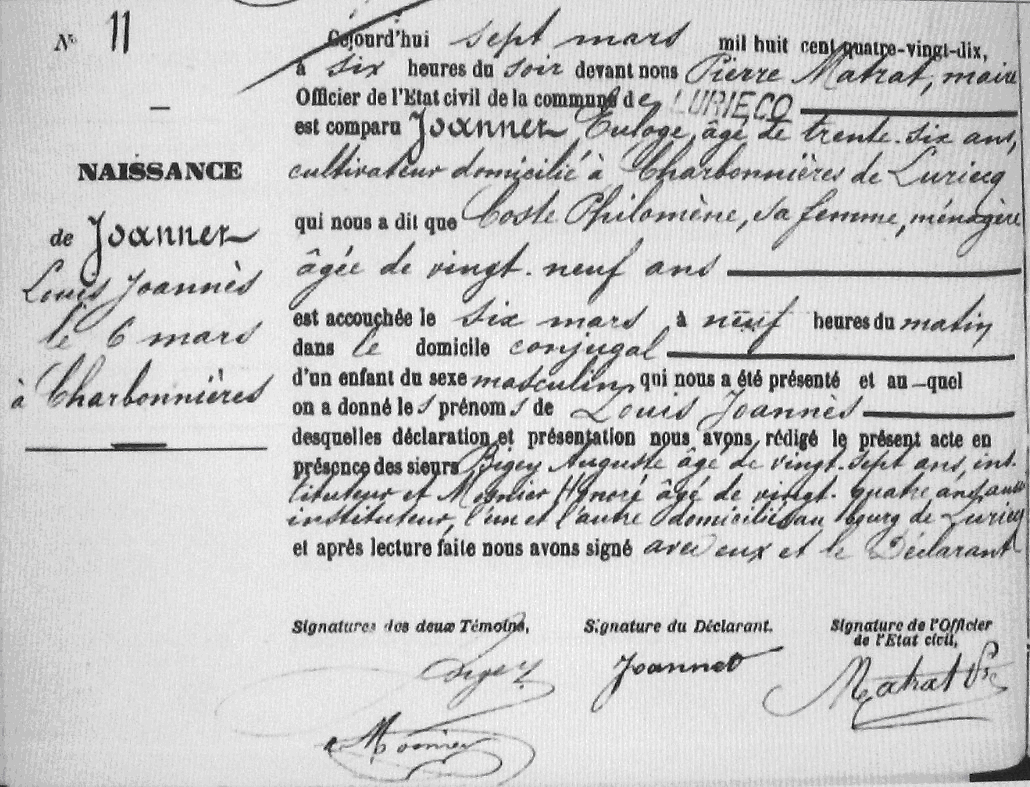 N° 11
Cejourd'hui sept mars mil huit cent quatre-vingt-dix,
à six heures du soir devant nous Pierre Matrat, maire
Officier de l'Etat civil de la commune de LURIECQ
est comparu Joannet Euloge, âgé de trente-six ans,
cultivateur domicilié à Charbonnières de Luriecq
qui nous a dit que Coste Philomène, sa femme, ménagère
âgée de vingt-neuf ans
est accouchée le six mars à neuf heures du matin
dans le domicile conjugal
d'un enfant du sexe masculin qui nous a été présenté et au-quel
on a donné les prénoms de Louis Joannès
desquelles déclaration et présentation nous avons rédigé le présent acte en
présence des sieurs Bigey Auguste âgé de vingt-sept ans, ins-
tituteur et Monier Honoré âgé de vingt-quatre ans aussi
instituteur, l'un et l'autre domiciliés au bourg de Luriecq
et après lecture faite nous avons signé avec eux et le Déclarant
NAISSANCE
de Joannet
Louis Joannès
le 6 mars
à Charbonnières
Signatures des deux Témoins,
Signature du Déclarant.
Signature de l'Officier
de l'Etat civil,
Bigey
Joannet
Matrat Pre
Monier